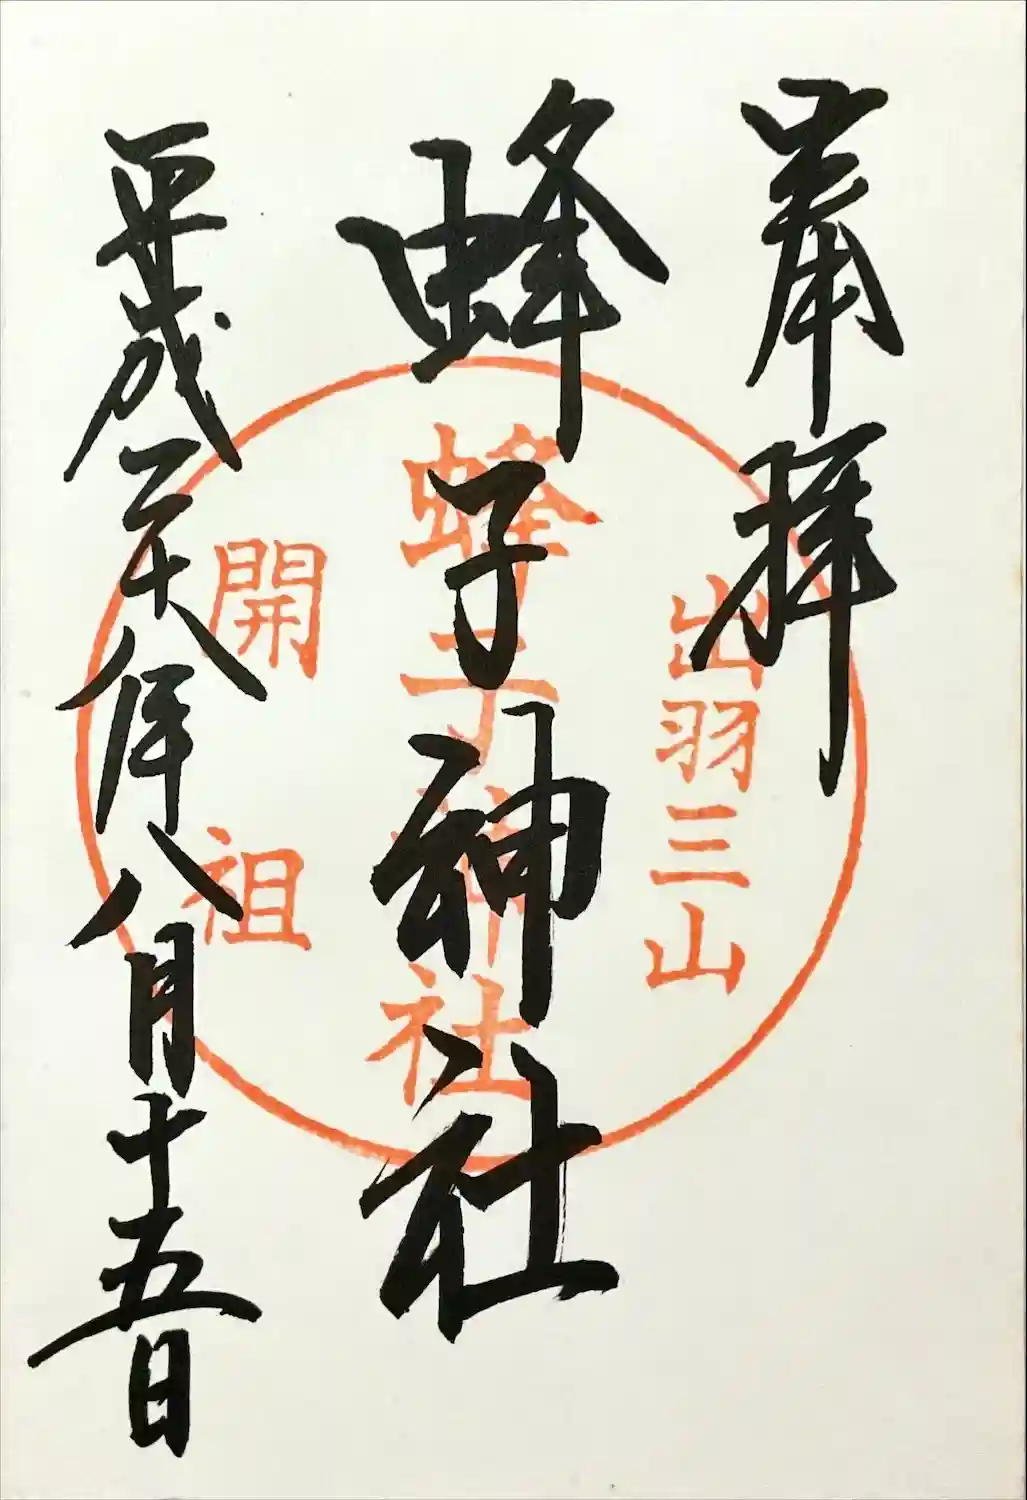 奉拝
出羽三山
蜂子神社
蜂子神社
開祖
平成二十八年八月十五日